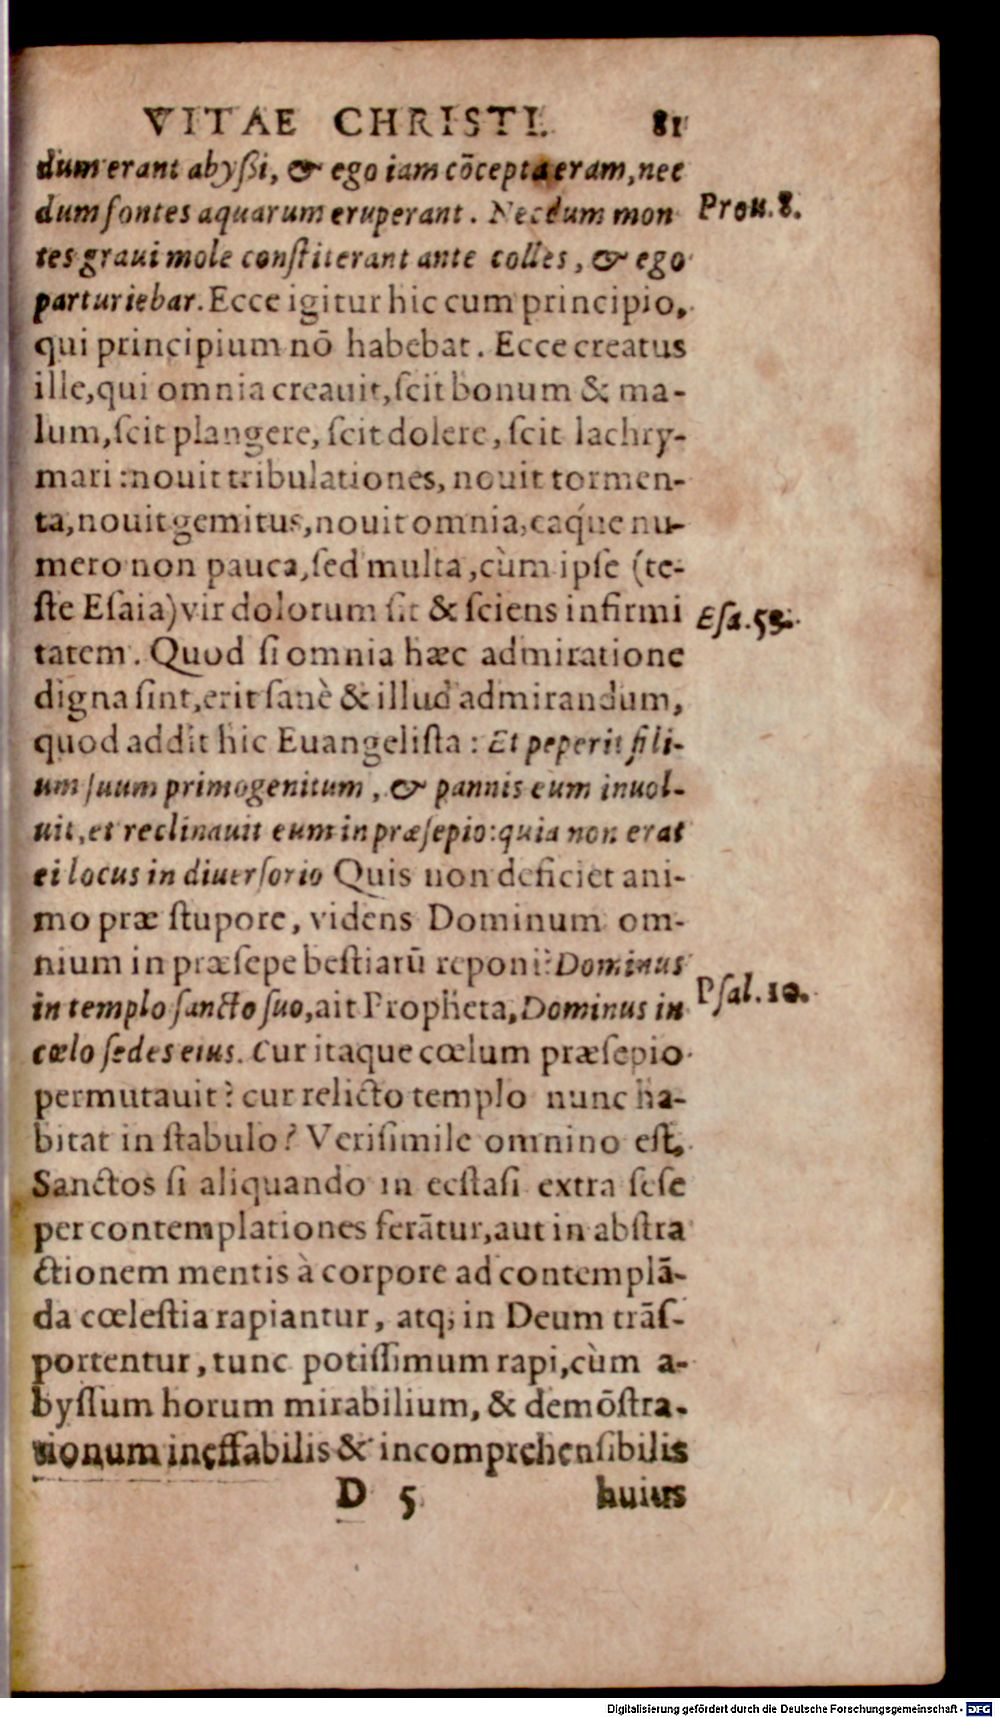 VITAE CHRISTI. 81
dum erant abyßi, & ego iam cōcepta eram, nec
dum fontes aquarum eruperant. Necdum mon
Prou. 8.
tes graui mole conſtiterant ante colles, & ego
parturiebar. Ecce igitur hic cum principio,
qui principium nō habebat. Ecce creatus
ille, qui omnia creauit, ſcit bonum & ma-
lum, ſcit plangere, ſcit dolere, ſcit lachry-
mari: nouit tribulationes, nouit tormen-
ta, nouit gemitus, nouit omnia, eaq́ue nu-
mero non pauca, ſed multa, cùm ipſe (te-
ſte Eſaia) vir dolorum ſit & ſciens infirmi
Eſa. 53.
tatem. Quod ſi omnia hæc admiratione
digna ſint, erit ſanè & illud admirandum,
quod addit hic Euangeliſta: Et peperit fili-
um ſuum primogenitum, & pannis eum inuol-
uit, et reclinauit eum in præſepio: quia non erat
ei locus in diuerſorio Quis non deficiet ani-
mo præ ſtupore, videns Dominum om-
nium in præſepe beſtiarū reponi? Dominus
in templo ſancto ſuo, ait Propheta, Dominus in
Pſal. 10.
cœlo ſedes eius. Cur itaque cœlum præſepio
permutauit? cur relicto templo nunc ha-
bitat in ſtabulo? Veriſimile omnino eſt,
Sanctos ſi aliquando in ecſtaſi extra ſeſe
per contemplationes ferātur, aut in abſtra
ctionem mentis à corpore ad contemplā-
da cœleſtia rapiantur, atq; in Deum trāſ-
portentur, tunc potiſſimum rapi, cùm a-
byſſum horum mirabilium, & demōſtra-
tionum ineffabilis & incomprehenſibilis
D 5 huius
Digitalisierung gefördert durch die Deutsche Forschungsgemeinschaft - DFG